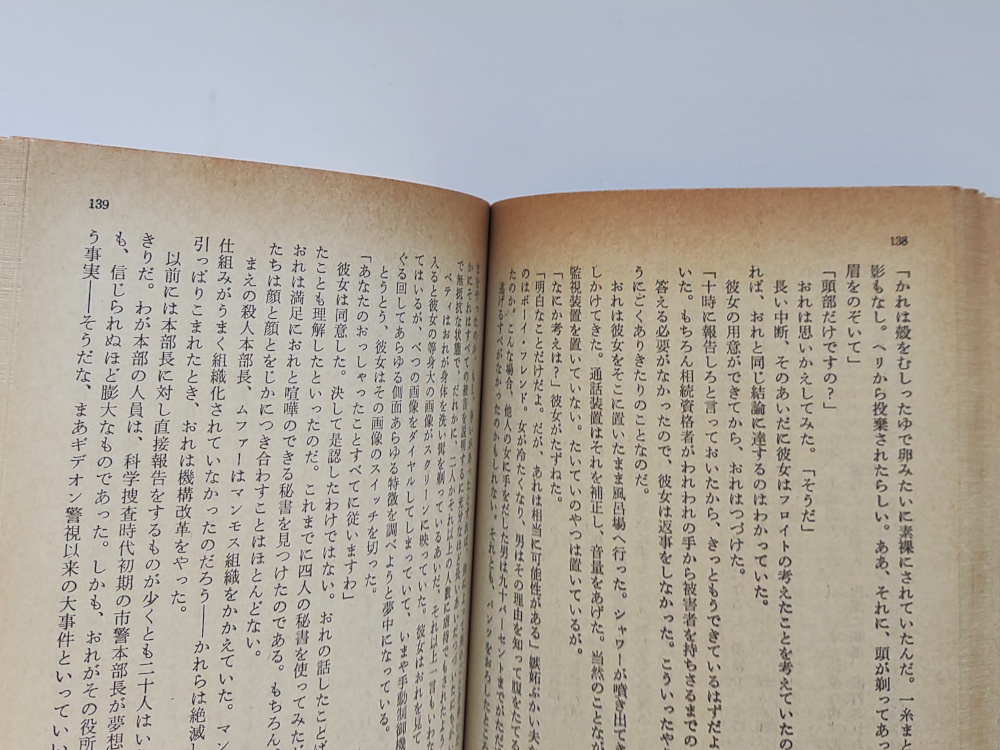 138
「かれは殻をむしったゆで卵みたいに素裸にされていたんだ。一糸ま
影もなし。ヘリから投棄されたらしい。ああ、それに、頭が剃ってあっ
眉をのぞいて」
「頭部だけですの？」
おれは思いかえしてみた。「そうだ」
長い中断、そのあいだに彼女はフロイトの考えたことを考えていたの
れば、おれと同じ結論に達するのはわかっていた。
彼女の用意ができてから、おれはつづけた。
「十時に報告しろと言っておいたから、きっともうできているはずだよ
いた。もちろん相続資格者がわれわれの手から被害者を持ちさるまでの
答える必要がなかったので、彼女は返事をしなかった。こういったやや
うにごくありきたりのことなのだ。
おれは彼女をそこに置いたまま風呂場へ行った。シャワーが噴き出て
しかけてきた。通話装置はそれを補正し、音量をあげた。当然のことなが
監視装置を置いていない。たいていのやつは置いているが。
「なにか考えは？」彼女がたずねた。
「明白なことだけだよ。だが、あれは相当に可能性がある」嫉妬ぶかい夫か
のはボーイ・フレンド。女が冷たくなり、男はその理由を知って腹をたてる
たのか。こんな場合、他人の女に手をだした男は九十パーセントまでがただ
逃げるすべがなかったのかもしれない。それとも、パンツをおろしたとこ
139
で無抵抗な状態で、だれかに、二人かそれ以上の人数に虐待でもされたよう
ベティはおれが身体を洗い髯を剃っているあいだ、それ以上一言もいわな
入ると彼女の等身大の画像がスクリーンに映っていた。彼女はおれを見て
てはいるが、べつの画像をダイヤルしてしまっていて、いまや手動制御機
ぐる回してあらゆる側面あらゆる特徴を調べようと夢中になっている。
とうとう、彼女はその画像のスイッチを切った。
「あなたのおっしゃったことすべてに従いますわ」
彼女は同意した。決して是認したわけではない。おれの話したことば
たことも理解したといったのだ。これまでに四人の秘書を使ってみたが
おれは満足におれと喧嘩のできる秘書を見つけたのである。もちろん
たちは顔と顔とをじかにつき合わすことはほとんどない。
まえの殺人本部長、ムファーはマンモス組織をかかえていた。マン
仕組みがうまく組織化されていなかったのだろう――かれらは絶滅し
引っぱりこまれたとき、おれは機構改革をやった。
以前には本部長に対し直接報告をするものが少くとも二十人はい
きりだ。わが本部の人員は、科学捜査時代初期の市警本部長が夢想
も、信じられぬほど膨大なものであった。しかも、おれがその役所
う事実――そうだな、まあギデオン警視以来の大事件といってい